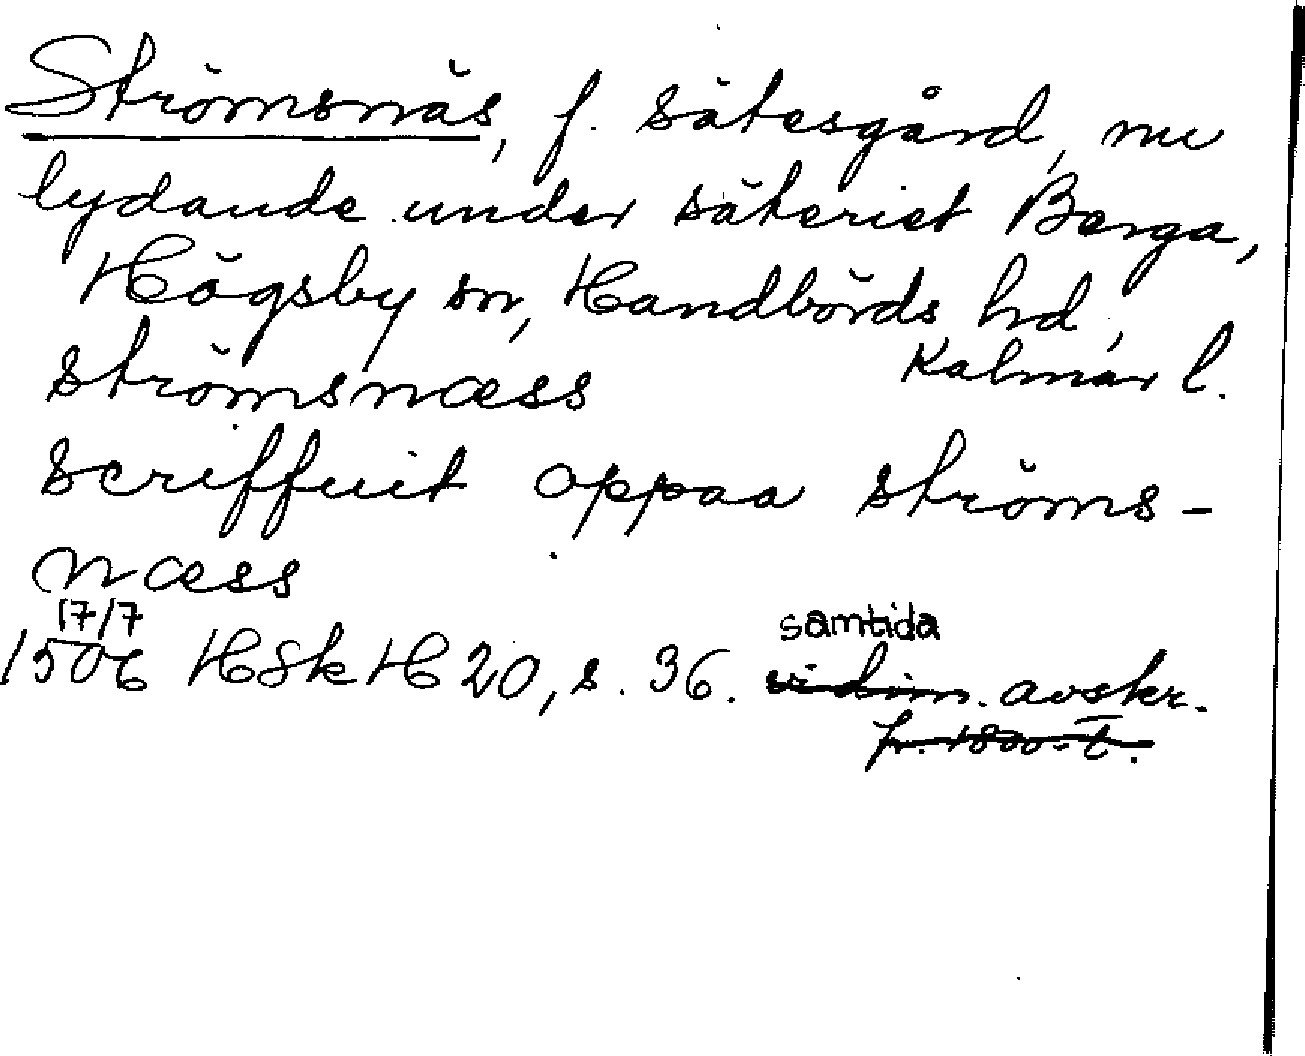 Strömsnäs, f. sätesgård, nu
lydande under säteriet Berga,
Högsby sn, Handbörds hd,
Kalmar l.
strömsnæss
scriffuit oppaa ströms-
næss
17/7
1506 HSk H 20, s. 36. samtida
vidim. avskr.
fr. 1800-t.